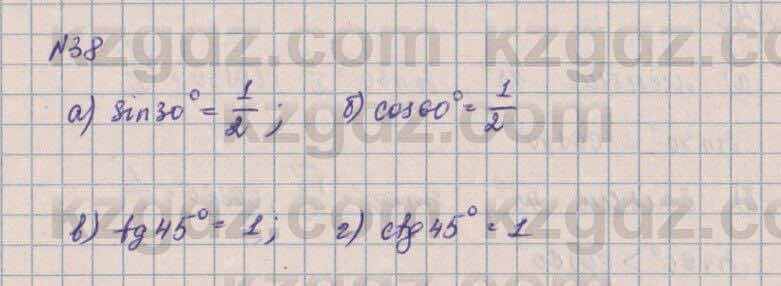 №38
а) sin30° = 1/2 ; б) cos60° = 1/2
в) tg45° = 1; г) ctg45° = 1
kzgdz.com kzgdz.com
kzgdz.com
kzgdz.com kzgdz.com